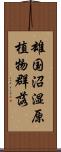 雄国沼湿原
植物群落